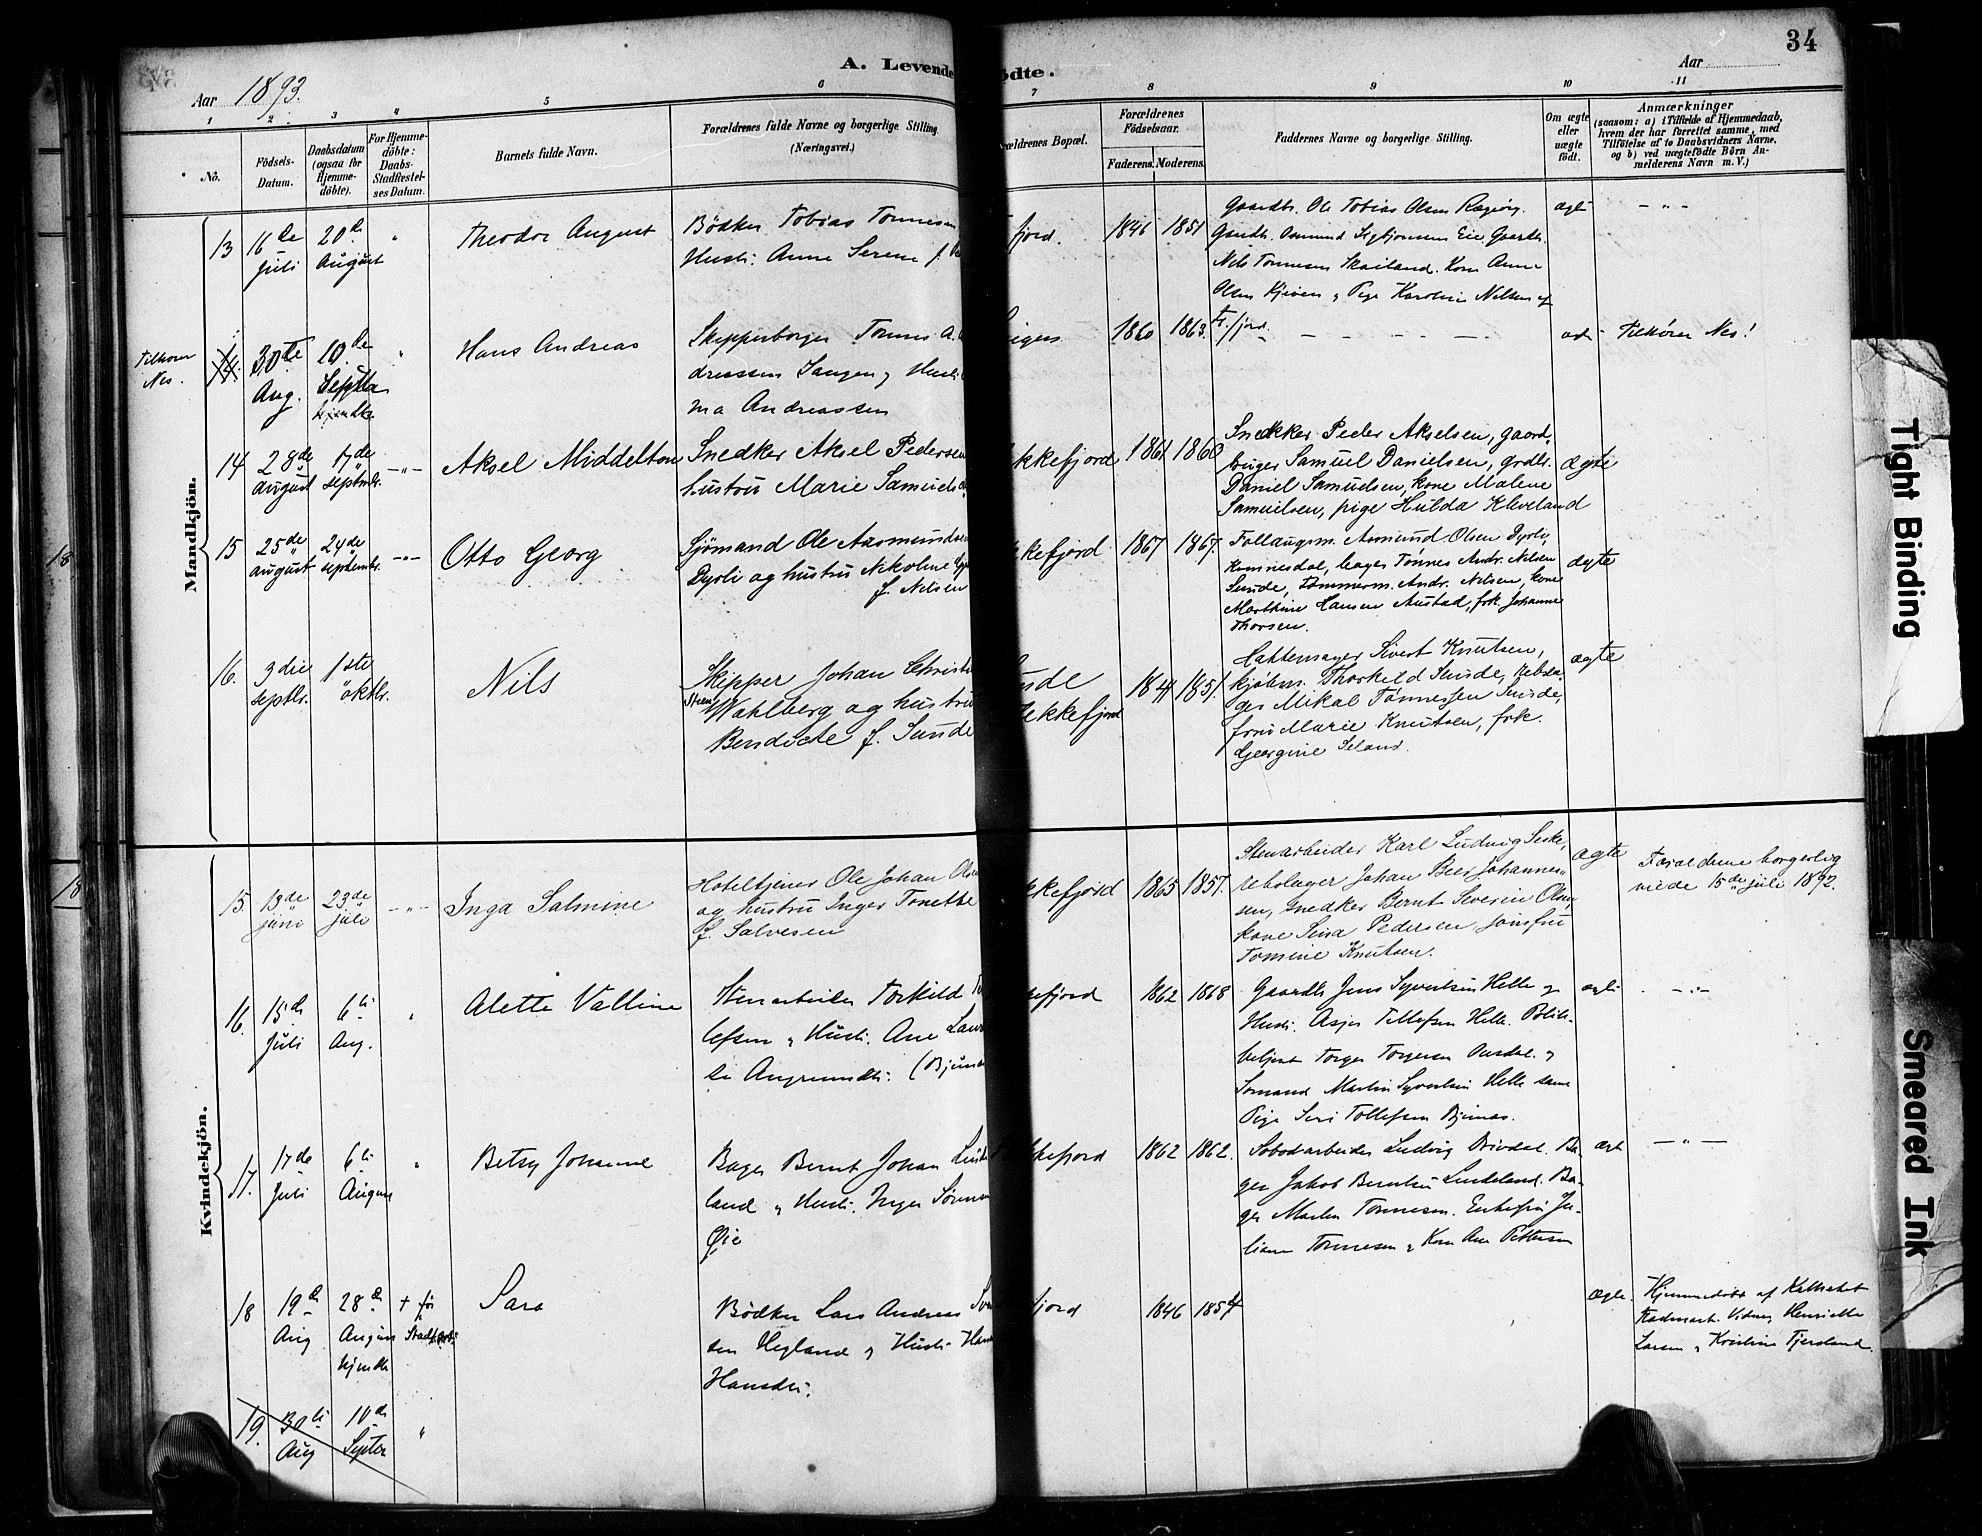 34
A. Levende
ødte.
Aar 1893.
Aar
1
2.
3
4
5
6
7
8
9
10
11
No.
Fødsels-
Datum.
Daabsdatum
(ogsaa for
Hjemme-
döbte).
For Hjemme-
döbte:
Daabs-
Stadfæstel-
ses Datum.
Barnets fulde Navn.
Forældrenes fulde Navne og borgerlige Stilling.
(Næringsvei.)
ældrenes Bopæl.
Forældrenes
Födselsaar.
Faderens.
Moderens.
Faddernes Navne og borgerlige Stilling.
Om ægte
eller
uægte
født.
Anmærkninger
(saasom: a) i Tilfælde af Hjemmedaab,
hvem der har forrettet samme, med
Tilföielse af to Daabsvidners Navne,
og b) ved uægtefödte Börn An-
melderens Navn m. V.)
Mandkjön.
13
16de
Juli
20de
August
Theodor August
Bödker Tobias Tønnesen
Hustr. Anne Serene f.
fjord.
1846
1851
Gaardbr. Ole Tobias Olsen
Gaardbr. Osmund Sigbjörnsen Eie, Gaardbr.
Nils Tønnesen Skailand. Kone Anne
Olsen & Pige Karoline Nilsen af
Fl.fjord.
ægte
- " -
Tilhører
Nes.
14.
30te
Aug.
10de
Septbr
hjemdbt.
Hans Andreas
Skipperborger Tønnes A.
dreassen Langen & Hustr.
na Andreassen
1860
1863.
ægte
Tilhører Nes!
14
28de
august
17de
septmbr.
- " -
Aksel Middelton
Snedker Aksel Pedersen
hustru Marie Samuels
kkefjord
1861
1860
Snedkker Peder Akselsen, gaard,
bruger Samuel Danielsen, grdbr.
Daniel Samuelsen, kone Malene
Samuelsen, pige Hulda Kleveland
ægte
15
25de
august
24de
septembr.
- " -
Otto Georg
Sjömand Ole Aasmundsen
Dyrli og hustru Nikoline
f. Nilsen
kkefjord
1867
1867.
Follaugsm. Asmund Olsen Dyrli,
Kvinnesdal, bager Tønnes Andr. Nilsen
Sunde, tømmerm. Andr. Nilsen, kone
Marthine Hansen Austad, frk. Johanne
Thorsen.
ægte
16.
3die
septbr.
1ste
oktbr.
Nils
Skipper Johan Christi
Wahlberg og hustru
Bendicte f. Sunde
unde
lekkefjord
1841
1851
Hattemager Sivert Knutsen,
kjöbm. Thorkild Sunde, Rebsla-
ger Mikal Tønnessen Sunde,
fru Marie Knutsen, frk.
Georgine Seland.
ægte
Kvindekjön.
15.
13de
juni
23de
juli
- " -
Inga Salmine
Hoteltjener Ole Johan Olsen
og hustru Inger Tonette
f. Salvesen
kkefjord
1865
1857.
Stenarbeider Karl Ludvig Seske,
rebslager Johan Beer Johannes-
sen, snedker Bernt Severin Olsen,
kone Sina Pedersen, jomfru
Tomine Knutsen.
ægte
Forældrene borgerlig
viede 15de juli 1892.
16.
15de
Juli
6te
Aug.
Alette Valline
Stenarbeider Torkild
lefsen & Hustr. Ane Lau
(Bjunes
kkefjord
1862
1868
Gaardbr. Jens Syvertsen Helle &
Hustr. Asje Tollefsen Helle. Politi-
betjent Torger Torgersen &
Sømand Martin Syvertsen Helle samt
Pige Seri Tollefsen Bjunes.
ægte
- " -
17.
17de
Juli
6te
August
Betsy Johanne
Bager Bernt Johan Linde
land & Hustr. Inger Sørense
Øie
kkefjord
1862
1862.
arbeider Ludvig Ba-
ger Jakob Berntsen Lindeland. Ba-
ger Martin Tønnesen. Enkefru Ju-
liane Tønnesen & Kone Ane Pettersen
ægte
- " -
18
19de
Aug
28de
August
hjemdbt
+ før
Stadf.
Sara
Bødker Lars Andreas
sen Hegland & Hustr. Hann
Hansdtr.
fjord
1846
1854
ægte.
Hjemmedøbt af Kateket
Vidner Henriette
Larsen & Kristine Tjersland.
19.
30te
Aug
10de
Septbr
18
18
Tight Binding
Smeared Ink